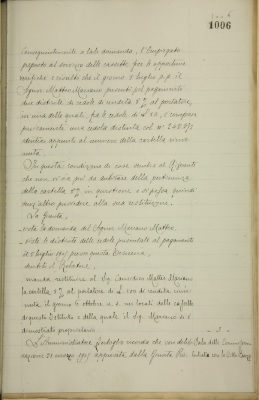 1006
Conseguentemente a tale domanda, l'Impiegato
preposto al servizio delle cassette fece le opportune
verifiche e risultò che il giorno 5 luglio p.p. il
Signor Matteo Mariano presentò pel pagamento
due distinte di cedole di rendita 5% al portatore,
in una delle quali, fra le cedole di L. 20, è compresa
precisamente una cedola distinta col n°
identico appunto al numero della cartella rinve-
nuta.
In questa condizione di cose sembra al
che non vi sia più da dubitare della pertinenza
della cartella 5% in questione e si possa quindi
senz'altro provvedere alla sua restituzione.
La Giunta,
- vista la domanda del Signor Mariano Matteo
- viste le distinte delle cedole presentate al pagamento
il 5 luglio 1907 presso questa
- sentito il Relatore,
manda restituirsi al Sig. Matteo Mariano
la cartella 5% al portatore di L. 200 di rendita rinve-
nuta il giorno 6 ottobre u.s. nei locali delle cassette
di questo Istituto e della quale il Sig. Mariano si è
dimostrato proprietario.
- 2 -
ricorda che con
31 marzo 1907 approvata dalla Giunta